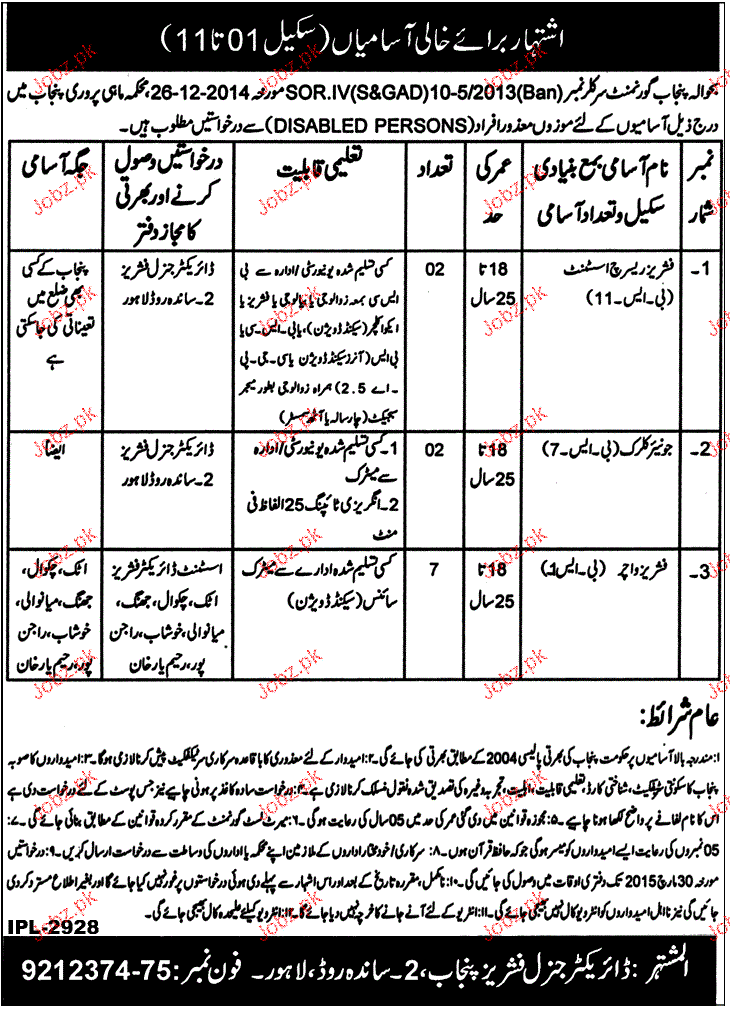 اشتہار برائے خالی آسامیاں (سکیل 01 تا 11)
بحوالہ پنجاب گورنمنٹ سرکلر نمبر SOR.IV(S&GAD)10-5/2013(Ban) مورخہ 26-12-2014، محکمہ ماہی پروری پنجاب میں
درج ذیل آسامیوں کے لئے موزوں معذور افراد (DISABLED PERSONS) سے درخواستیں مطلوب ہیں۔
نمبر شمار
نام آسامی بمع بنیادی سکیل و تعداد آسامی
عمر کی حد
تعداد
تعلیمی قابلیت
درخواستیں وصول کرنے اور بھرتی کا مجاز دفتر
جگہ آسامی
1۔
فشریز ریسرچ اسسٹنٹ
(بی۔ایس۔11)
18 تا
25 سال
02
کسی تسلیم شدہ یونیورسٹی/ادارہ سے بی
ایس سی بمعہ زوالوجی یا بیالوجی یا فشریز یا
ایکواکلچر (سیکنڈ ڈویژن)، یا بی۔ایس۔سی یا
بی ایس (آنرز سیکنڈ ڈویژن یا سی۔جی۔پی
۔اے 2.5) ہمراہ زوالوجی بطور میجر
سبجیکٹ (چار سالہ یا آٹھ سمسٹر)
ڈائریکٹر جنرل فشریز
2۔ساندہ روڈ لاہور
پنجاب کے کسی
بھی ضلع میں
تعیناتی کی جاسکتی
ہے
2۔
جونیئر کلرک (بی۔ایس۔7)
18 تا
25 سال
02
1۔کسی تسلیم شدہ یونیورسٹی/ادارہ
سے میٹرک
2۔انگریزی ٹائپنگ 25 الفاظ فی
منٹ
ڈائریکٹر جنرل فشریز
2۔ساندہ روڈ لاہور
ایضاً
3۔
فشریز واچر (بی۔ایس۔1)
18 تا
25 سال
7
کسی تسلیم شدہ ادارے سے میٹرک
سائنس (سیکنڈ ڈویژن)
اسسٹنٹ ڈائریکٹر فشریز
اٹک، چکوال، جھنگ،
میانوالی، خوشاب، راجن
پور، رحیم یار خان
اٹک، چکوال،
جھنگ، میانوالی،
خوشاب، راجن
پور، رحیم یار خان
عام شرائط:
۱: مندرجہ بالا آسامیوں پر حکومت پنجاب کی بھرتی پالیسی 2004 کے مطابق بھرتی کی جائے گی۔ ۲: امیدوار کے لئے معذوری کا باقاعدہ سرکاری سرٹیفکیٹ پیش کرنا لازمی ہوگا۔ ۳: امیدواروں کا صوبہ
پنجاب کا سکونتی سرٹیفکیٹ، شناختی کارڈ، تعلیمی قابلیت، اہلیت، تجربہ وغیرہ کی تصدیق شدہ نقول منسلک کرنا لازمی ہے۔ ۴: درخواست سادہ کاغذ پر ہونی چاہیے نیز جس پوسٹ کے لئے درخواست دی ہے
اس کا نام لفافے پر واضح لکھا ہونا چاہیے۔ ۵: مجوزہ قوانین میں دی گئی عمر کی حد میں 05 سال کی رعایت ہوگی۔ ۶: میرٹ لسٹ گورنمنٹ کے مقرر کردہ قوانین کے مطابق بنائی جائے گی۔ ۷:
05 نمبروں کی رعایت ایسے امیدواروں کو میسر ہوگی جو کہ حافظ قرآن ہوں۔ ۸: سرکاری/خودمختار اداروں کے ملازمین اپنے محکمہ یا اداروں کی وساطت سے درخواست ارسال کریں۔ ۹: درخواستیں
مورخہ 30 مارچ 2015 تک دفتری اوقات میں وصول کی جائیں گی۔ ۱۰: نامکمل، مقررہ تاریخ کے بعد اور اس اشتہار سے پہلے دی ہوئی درخواستوں پر غور نہیں کیا جائے گا اور بغیر اطلاع مسترد کر دی
جائیں گی نیز نااہل امیدواروں کو انٹرویو کال نہیں بھیجی جائے گی۔ ۱۱: انٹرویو کے لئے آنے جانے کا خرچہ نہیں دیا جائے گا۔ ۱۲: انٹرویو کیلئے علیحدہ کال بھیجی جائے گی۔
IPL-2928
المشتہر: ڈائریکٹر جنرل فشریز پنجاب، 2۔ساندہ روڈ، لاہور۔ فون نمبر: 75-9212374
Jobz.pk